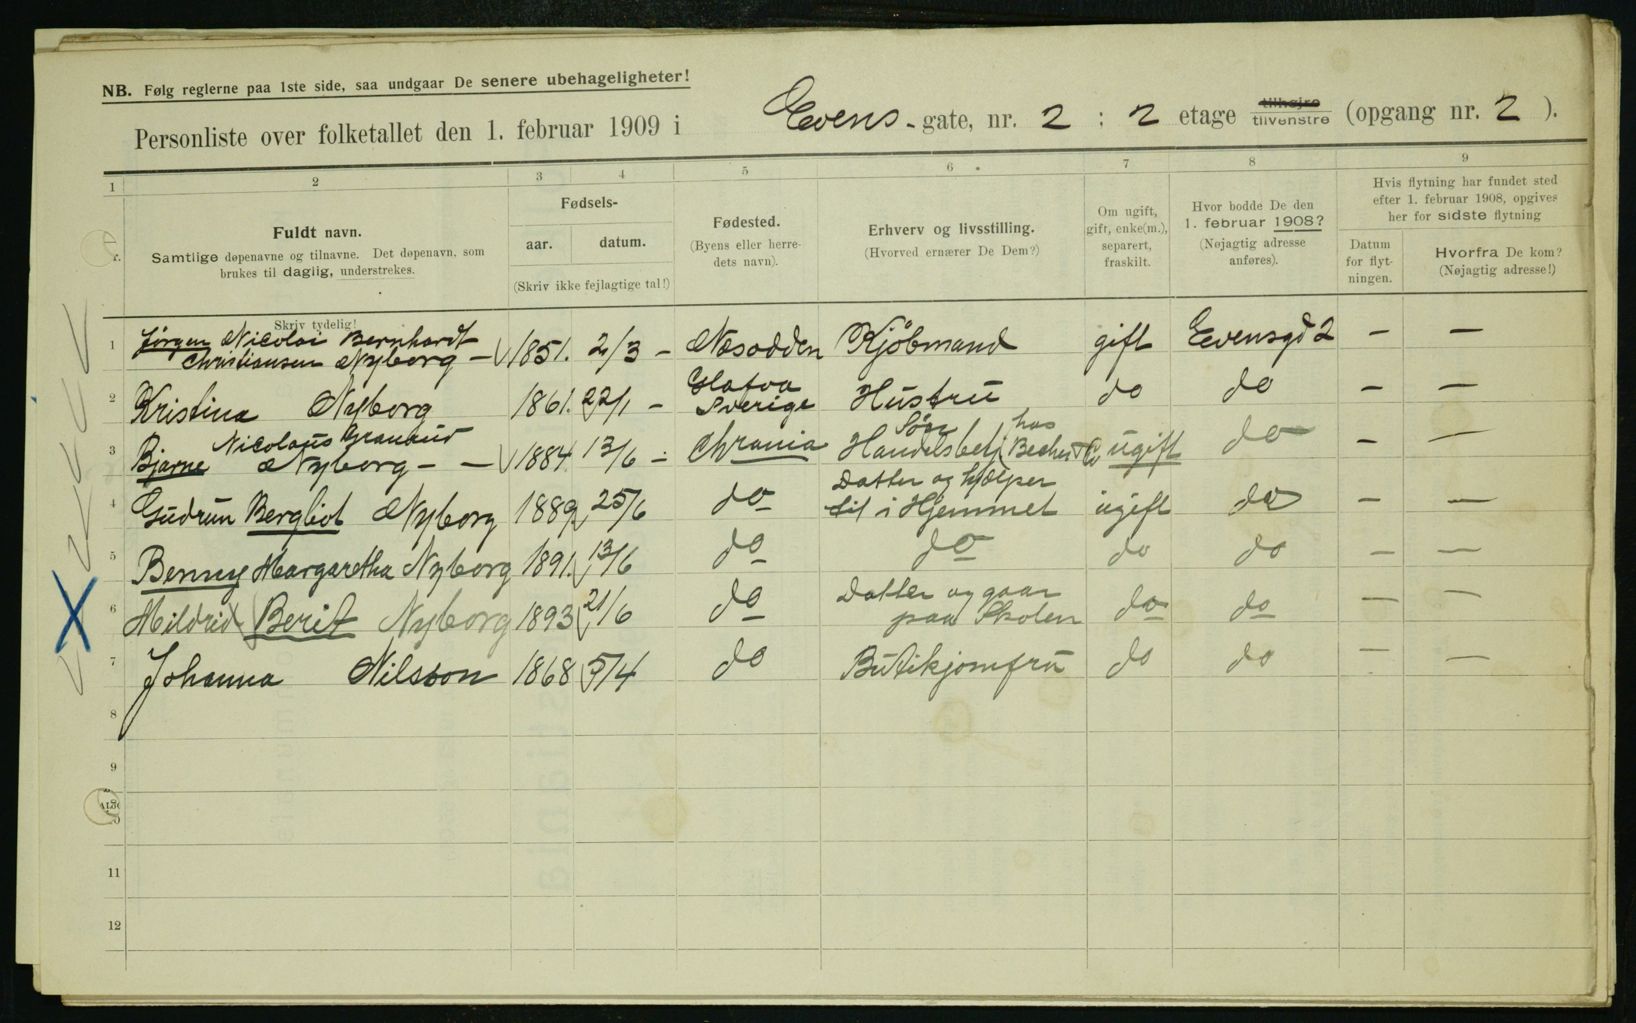 NB. Følg reglerne paa 1ste side, saa undgaar De senere ubehageligheter!
Personliste over folketallet den 1. februar 1909 i Evens-gate, nr. 2 : 2 etage tilhøjre tilvenstre (opgang nr. 2 ).
1 2 3 4 5 6 7 8 9
Fuldt navn.
Samtlige døpenavne og tilnavne. Det døpenavn, som
brukes til daglig, understrekes.
Skriv tydelig!
Fødsels-
aar. datum.
(Skriv ikke fejlagtige tal!)
Fødested.
(Byens eller herre-
dets navn).
Erhverv og livsstilling.
(Hvorved ernærer De Dem?)
Om ugift,
gift, enke(m.),
separert,
fraskilt.
Hvor bodde De den
1. februar 1908?
(Nøjagtig adresse
anføres).
Hvis flytning har fundet sted
efter 1. februar 1908, opgives
her for sidste flytning
Datum
for flyt-
ningen.
Hvorfra De kom?
(Nøjagtig adresse!)
1 Jørgen Nicolai Bernhardt
Christiansen Nyborg — 1851. 2/3 - Næsodden Kjöbmand gift Evensgd 2 — —
2 Kristina Nyborg 1861. 22/1 - Glafva
Sverige Hustru do do — —
3 Bjarne Nicolaus
Nyborg - — 1884 13/6 - Chrania Søn
Handelsbetj. hos ugift do — —
4 Gudrun Bergliot Nyborg 1889 25/6 do Datter og hjælper
til i Hjemmet ugift do — —
5 Benny Margaretha Nyborg 1891. 13/6 do do do do — —
6 Mildrid Berit Nyborg 1893 21/6 do Datter og gaar
paa Skolen do do — —
7 Johanna Nilsson 1868 5/4 do Butikjomfru do do — —
8
9
11
12